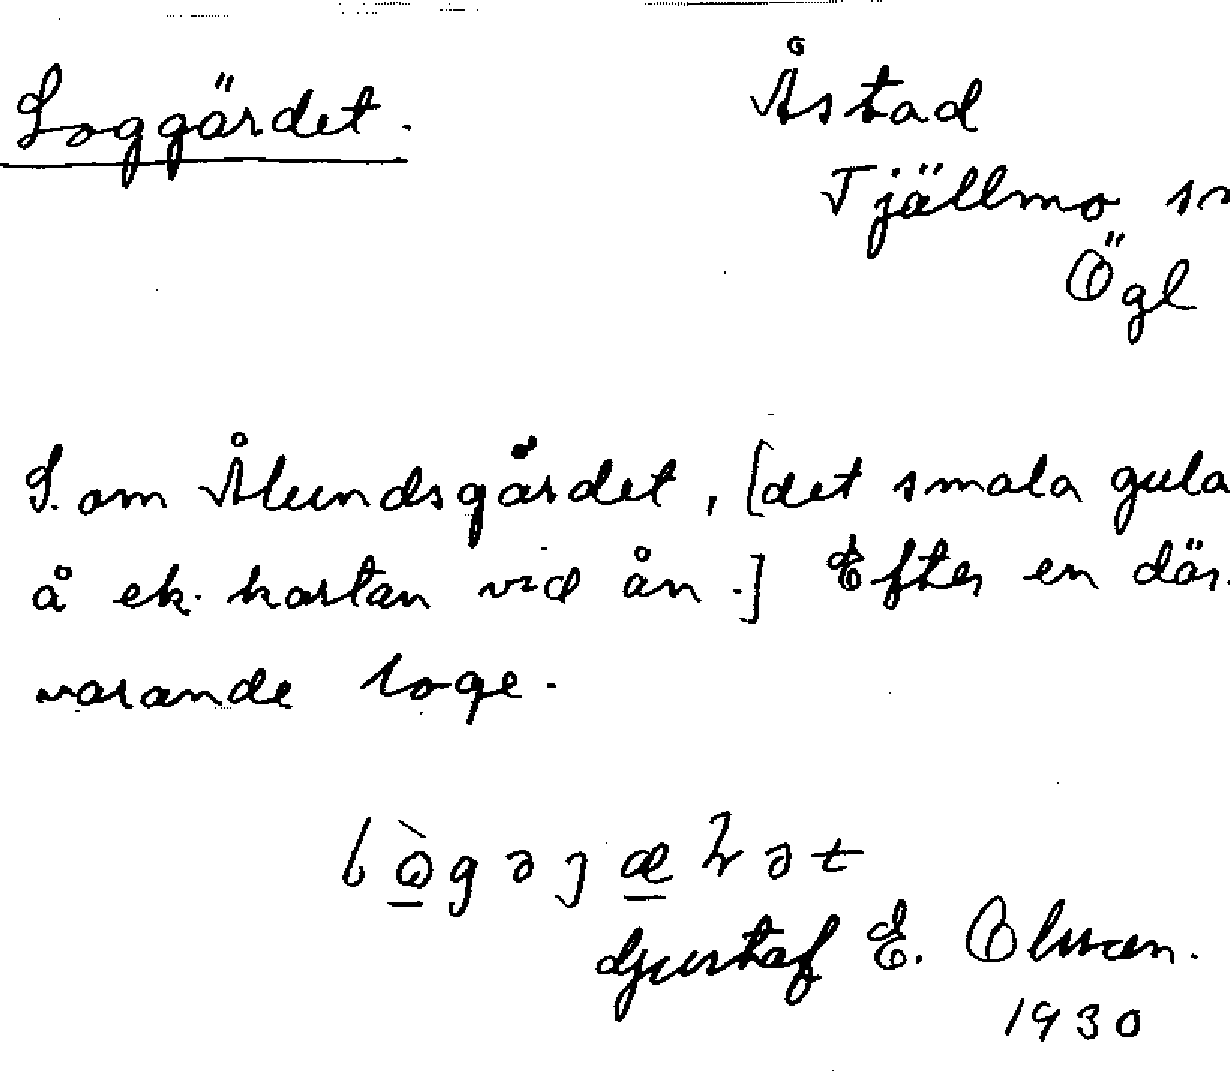 Loggärdet.
Åstad
Tjällmo sn
Ögl
S. om Ålundsgärdet, [det smala gula
å ek. kartan vid ån.] Efter en där-
varande loge.
Gustaf E. Olsson.
1930